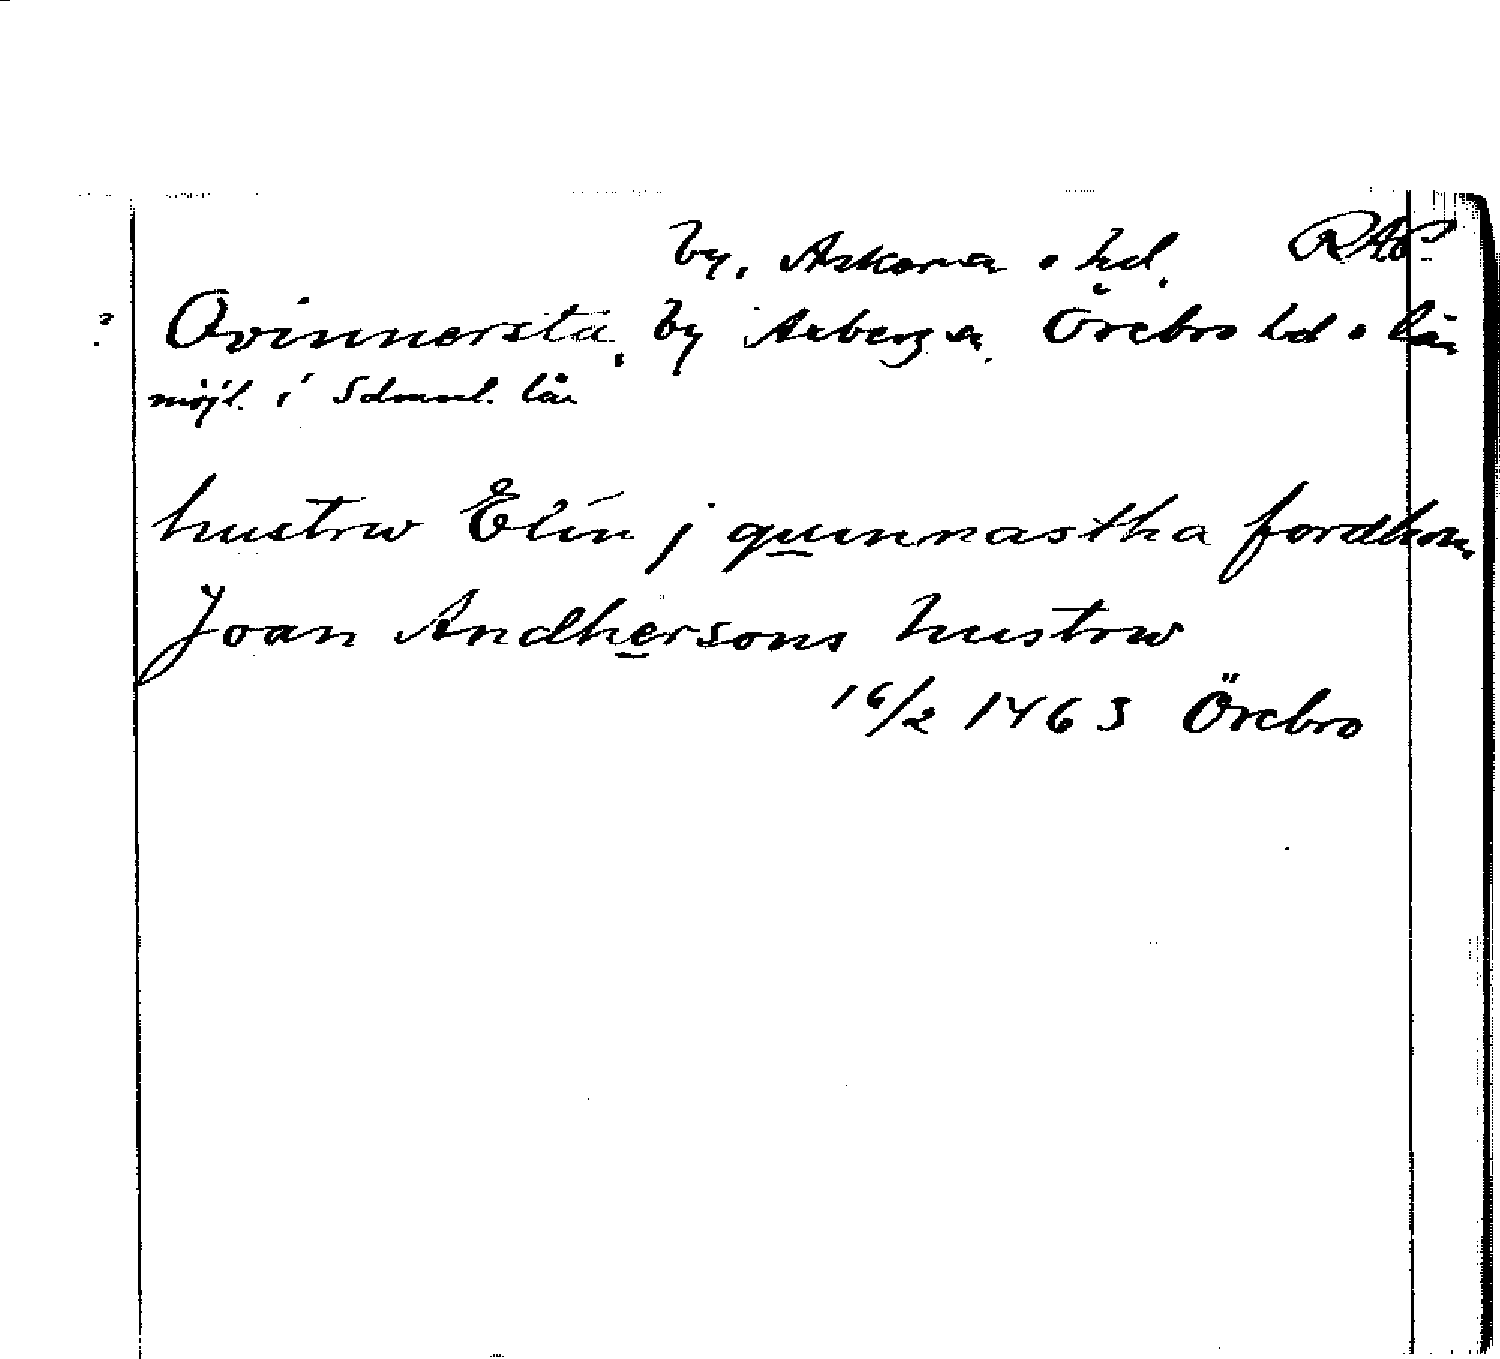 by, Askers s o hd. RAP.
? Qvinnersta, by Axbergs s, Örebro hd o län
möjl. i Sdmnl. län
hustrw Elin j quinnastha fordhom
Joan Andhersons hustrw
16/2 1463 Örebro